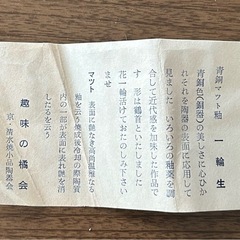 青銅マツト釉　一輪生
青銅色(銅器)の美しさに心ひか
れそれを陶器の表面に応用して
見ました　いろいろの釉薬を調
合して近代感を加味した作品で
す　形は鶴首といたしました
花一輪活けておたのしみ下さい
ませ
マツト　表面に艶なき高尚温雅なる
釉を云う焼成後冷却の際陶質
内の一部が表面に表れ艶を消
したるを云う
趣味の橘会
京・清水焼小品陶器会